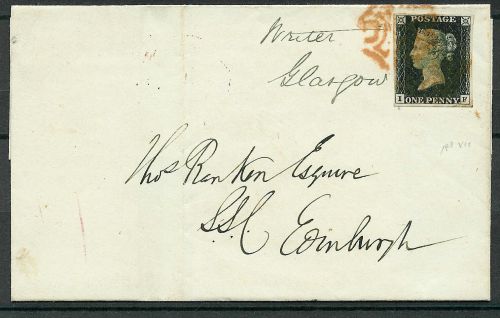 Writer
Glasgow
POSTAGE
I F
ONE PENNY
Thos Ranken Esquire
SSC Edinburgh